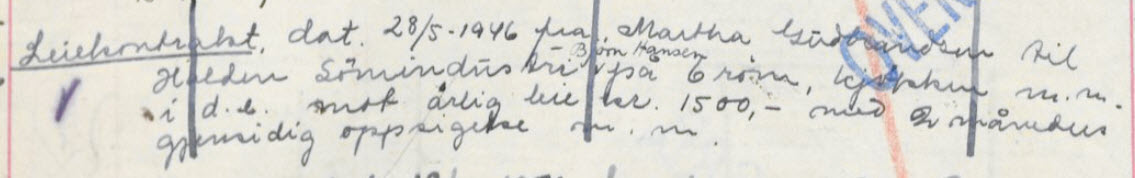 Leiekontrakt, dat. 28/5-1946 fra Martha Gudbrandsen til
Halden Sömindustri på 6 röm, kjökken m.m.
Björn Hansen
i d.e. mot årlig leie kr. 1500,- med 2 måneders
gjensidig oppsigelse m.m.
OVER